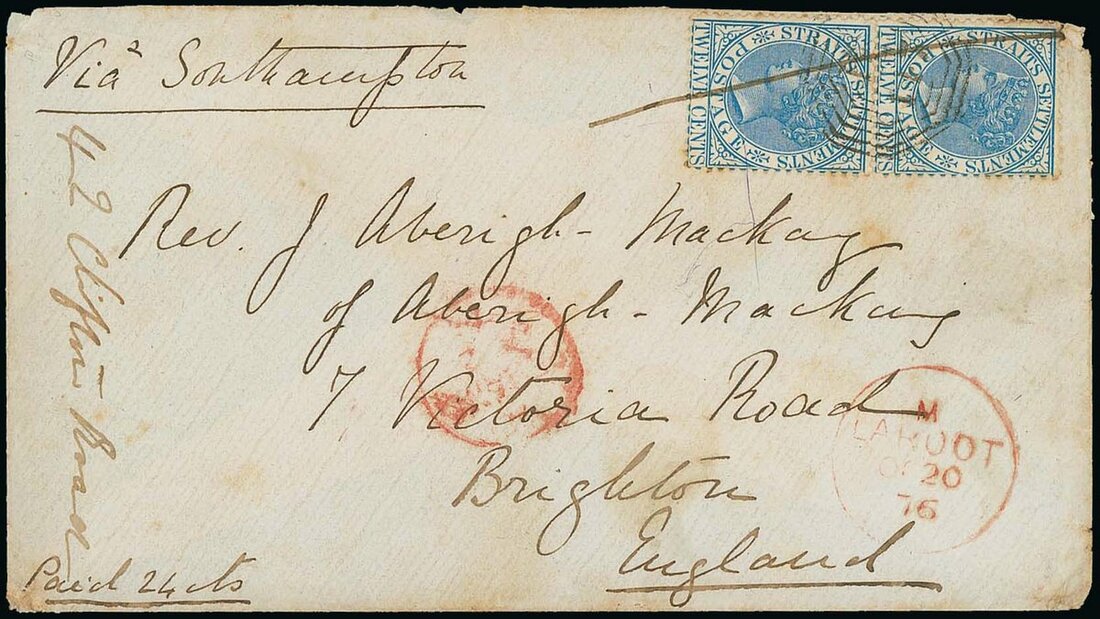 Viâ Southampton
STRAITS SETTLEMENTS
POSTAGE
TWELVE CENTS
STRAITS SETTLEMENTS
POSTAGE
TWELVE CENTS
Rev. J. Aberigh-Mackay
of Aberigh-Mackay
7 Victoria Road
Brighton
England
42 Clifton Road
Paid 24 cts
M
LAROOT
OC 20
76